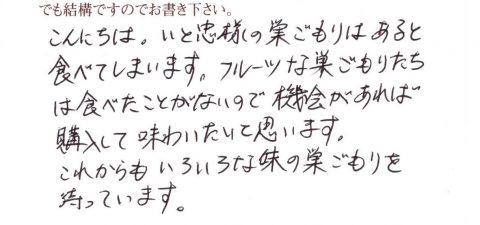 でも結構ですのでお書き下さい。
こんにちは。いと忠様の巣ごもりはあると
食べてしまいます。フルーツな巣ごもりたち
は食べたことがないので機会があれば
購入して味わいたいと思います。
これからもいろいろな味の巣ごもりを
待っています。